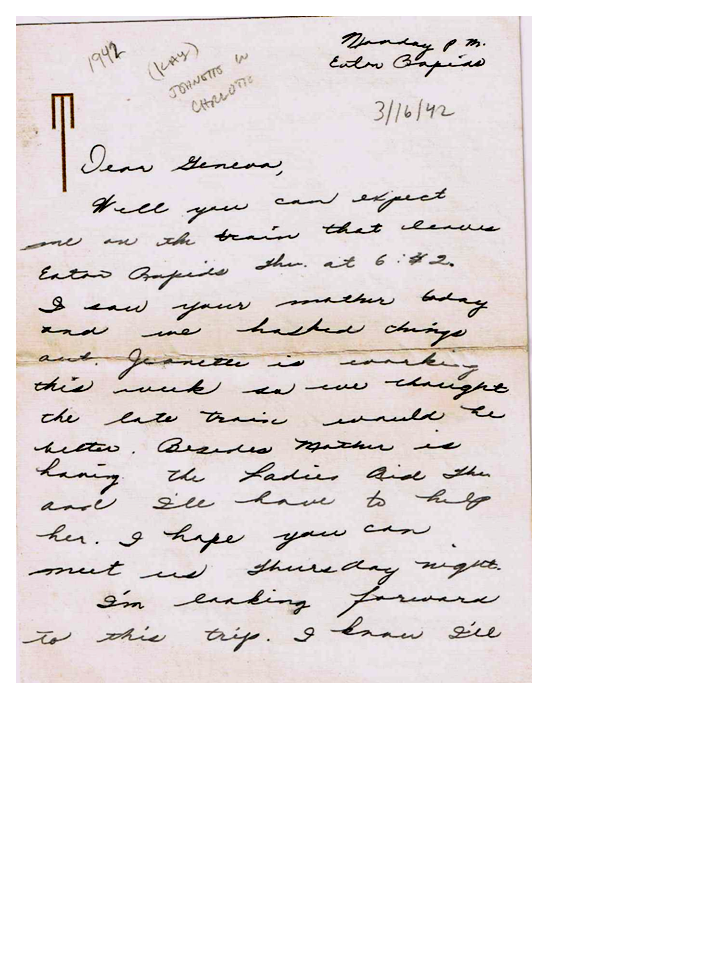 Monday P.M.
Eaton Rapids
1942
(KAY)
JOHNETTE IN
CHARLOTTE
3/16/42
Dear Geneva,
Well you can expect
me on the train that leaves
Eaton Rapids Thu. at 6:42.
I saw your mother today
and we hashed things
out. Jeanette is working
this week so we thought
the late train would be
better. Besides Mother is
having the Ladies Aid Thu
and I'll have to help
her. I hope you can
meet us Thursday night.
I'm looking forward
to this trip. I know I'll